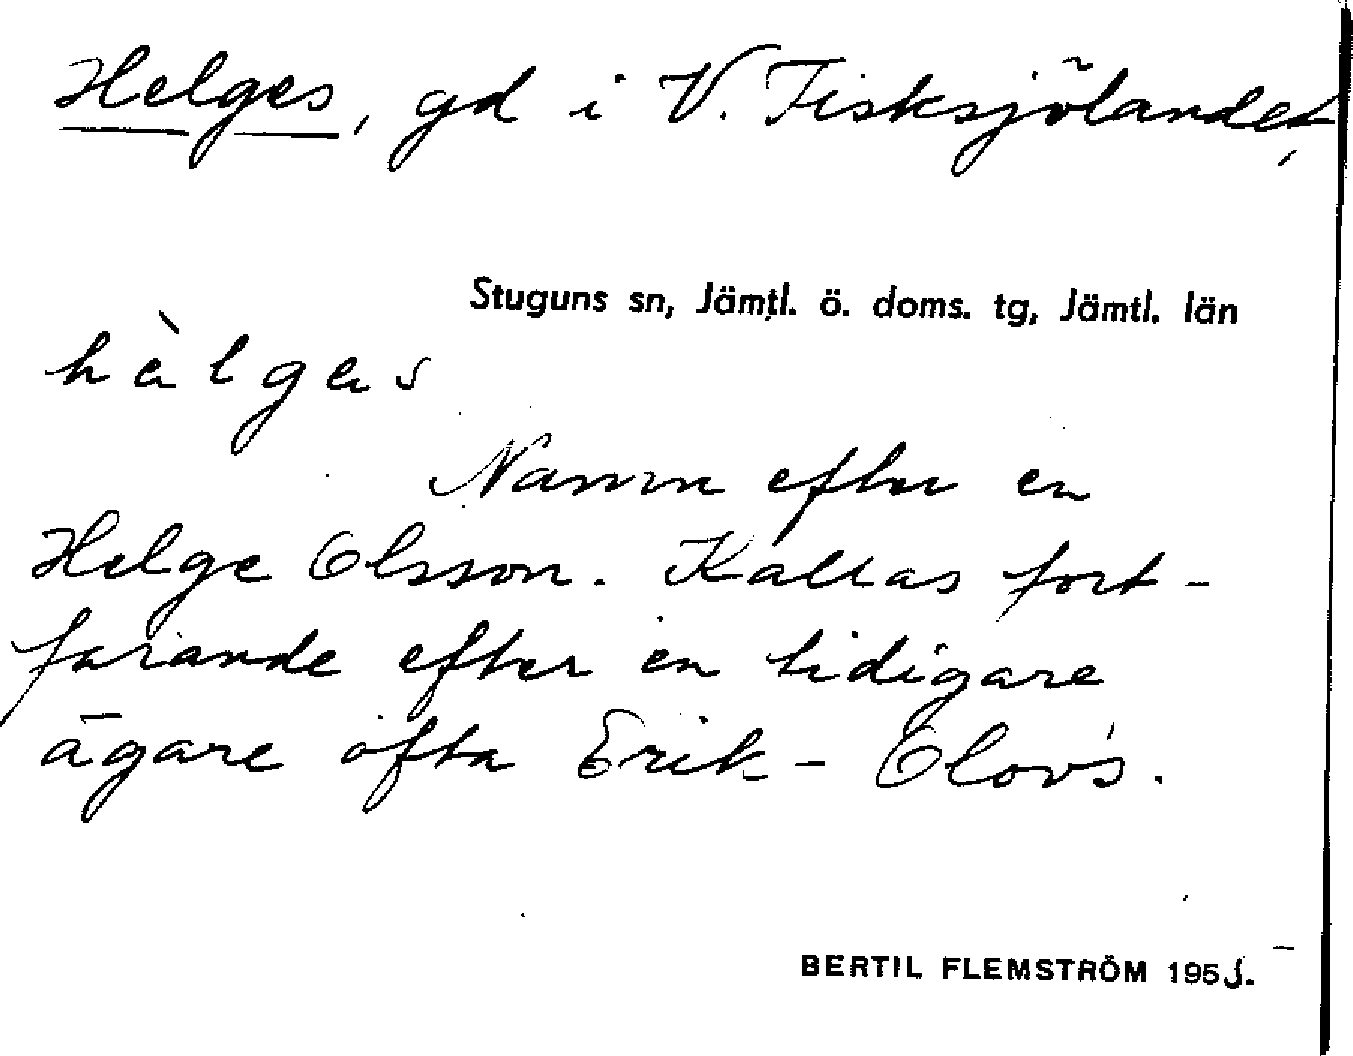 Helges, gd i V. Fisksjölandet,
Stuguns sn, Jämtl. ö. doms. tg, Jämtl. län
hàlgas
Namn efter en
Helge Olsson. Kallas fort-
farande efter en tidigare
ägare ofta Erik-Olovs.
BERTIL FLEMSTRÖM 195